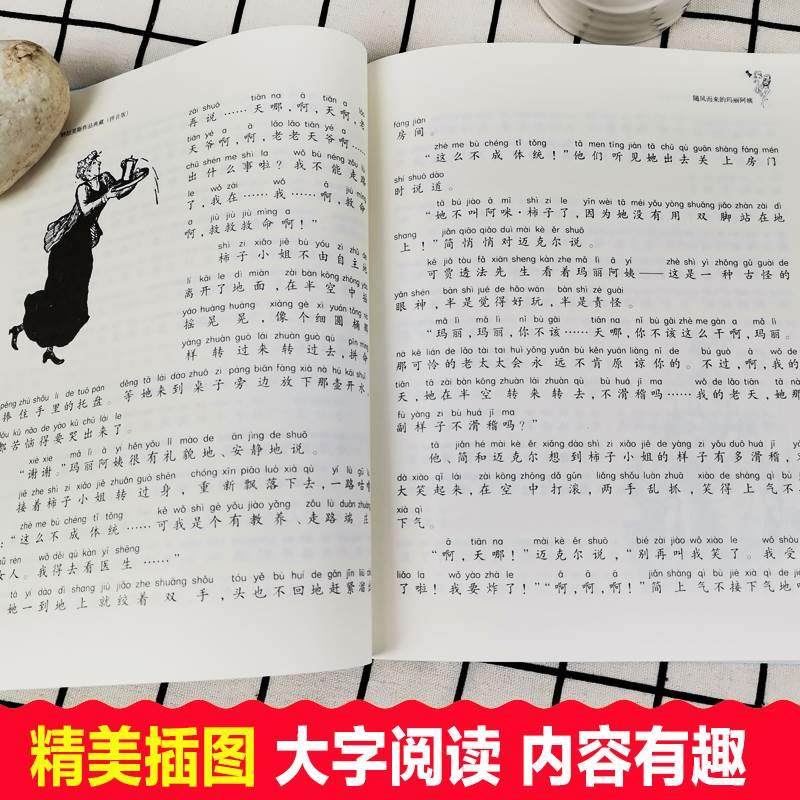 作品典藏（拼音版）
zài shuō tiān na ā tiān a lǎo
再说……天哪，啊，天啊，老
tiān yé a ā lǎo lǎo tiān yé a
天爷啊，啊，老老天爷啊……
chū shén me shì la wǒ bù néng zǒu lù
出什么事啦？我不能走路
le wǒ zài wǒ a jiù mìng
了，我在……我……啊，救命
a jiù jiù jiù mìng a
啊，救救救命啊！”
shì zi xiǎo jiě bù yóu zì zhǔ de
柿子小姐不由自主地
lí kāi le dì miàn zài bàn kōng zhōng yáo
离开了地面，在半空中摇
yáo huàng huàng xiàng gè xì yuán tǒng nà
摇晃晃，像个细圆桶那
yàng zhuàn guò lái zhuàn guò qù pīn mìng
样转过来转过去，拼命
pěng zhù shǒu lǐ de tuō pán děng tā lái dào zhuō zi páng biān fàng xià nà hú kāi shuǐ
捧住手里的托盘。等她来到桌子旁边放下那壶开水，
dōu kǔ nǎo de yào kū chū lái le
都苦恼得要哭出来了。
xiè xie mǎ lì ā yí hěn yǒu lǐ mào de ān jìng de shuō
“谢谢。”玛丽阿姨很有礼貌地、安静地说。
jiē zhe shì zi xiǎo jiě zhuǎn guò shēn chóng xīn piāo luò xià qù yí lù gū
接着柿子小姐转过身，重新飘落下去，一路咕
zhè me bù chéng tǐ tǒng kě wǒ shì gè yǒu jiào yǎng zǒu lù duān zhuāng
：“这么不成体统……可我是个有教养、走路端庄
nǚ rén wǒ děi qù kàn yī shēng
女人。我得去看医生……”
tā yí dào dì shang jiù jiǎo zhe shuāng shǒu tóu yě bù huí de gǎn jǐn liū
她一到地上就绞着双手，头也不回地赶紧溜
随风而来的玛丽阿姨
fáng jiān
房间。
zhè me bù chéng tǐ tǒng tā men tīng jiàn tā chū qù guān shàng fáng mén
“这么不成体统！”他们听见她出去关上房门
shí shuō dào
时说道。
tā bú jiào ā mī shì zi le yīn wèi tā méi yǒu yòng shuāng jiǎo zhàn zài dì
“她不叫阿咪·柿子了，因为她没有用双脚站在地
shang jiǎn qiāo qiāo duì mài kè ěr shuō
上！”简悄悄对迈克尔说。
kě jiǎ tòu fǎ xiān sheng kàn zhe mǎ lì ā yí zhè shì yì zhǒng gǔ guài de
可贾透法先生看着玛丽阿姨——这是一种古怪的
yǎn shén bàn shì jué de hǎo wán bàn shì zé guài
眼神，半是觉得好玩，半是责怪。
mǎ lì mǎ lì nǐ bù gāi tiān na nǐ bù gāi zhè me gàn a mǎ lì
“玛丽，玛丽，你不该……天哪，你不该这么干啊，玛丽。
nà kě lián de lǎo tài tai huì yǒng yuǎn bù kěn yuán liàng nǐ de bú guò ā wǒ de
那可怜的老太太会永远不肯原谅你的。不过，啊，我的
tiān tā zài bàn kōng zhōng zhuàn lái zhuàn qù bù huá jī ma wǒ de lǎo tiān tā nà
天，她在半空中转来转去，不滑稽吗……我的老天，她那
fù yàng zi bù huá jī ma
副样子不滑稽吗？”
tā jiǎn hé mài kè ěr xiǎng dào shì zi xiǎo jiě de yàng zi yǒu duō huá jī
他、简和迈克尔想到柿子小姐的样子有多滑稽，又
dà xiào qǐ lái zài kōng zhōng dǎ gǔn liǎng shǒu luàn zhuā xiào de shàng qì bù
大笑起来，在空中打滚，两手乱抓，笑得上气不
xià qì
下气。
ā tiān na mài kè ěr shuō bié zài jiào wǒ xiào le wǒ shòu
“啊，天哪！”迈克尔说，“别再叫我笑了。我受
liǎo la wǒ yào zhà le ā ā ā jiǎn shàng qì bù jiē xià qì de
了啦！我要炸了！”“啊，啊，啊！”简上气不接下气地
精美插图 大字阅读 内容有趣